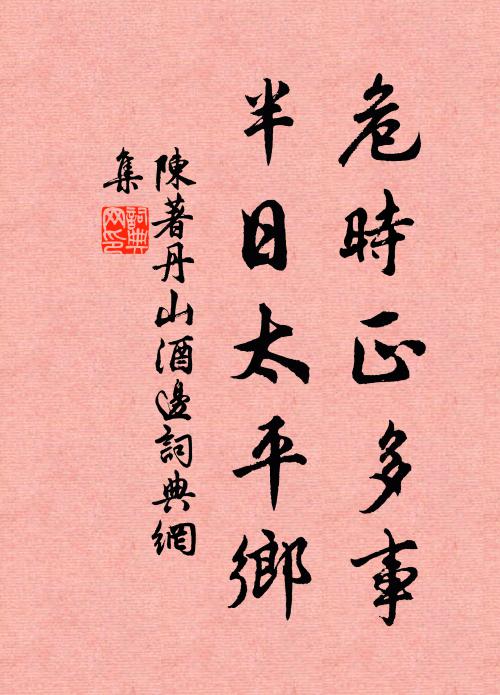 危時正多事
半日太平鄉
陳著丹山酒邊詞典網
集
詞典
网印